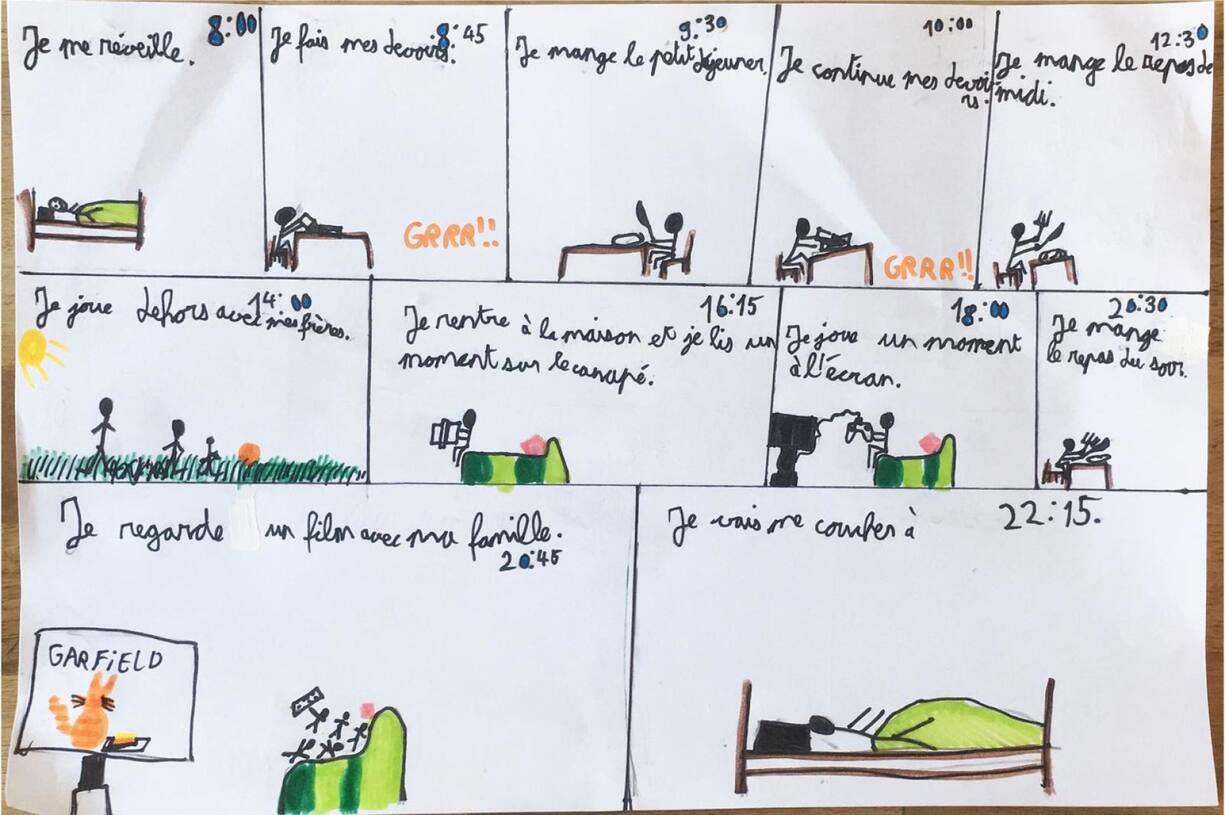 8:00
Je me réveille.
8:45
Je fais mes devoirs.
GRRR!!
9:30
Je mange le petit déjeuner.
10:00
Je continue mes devoi
rs.
GRRR!!
12:30
Je mange le repas de
midi.
14:00
Je joue dehors avec mes frères.
16:15
Je rentre à la maison et je lis un
moment sur le canapé.
18:00
Je joue un moment
à l'écran.
20:30
Je mange
le repas du soir.
Je regarde un film avec ma famille.
20:45
GARFiELD
Je vais me coucher à 22:15.